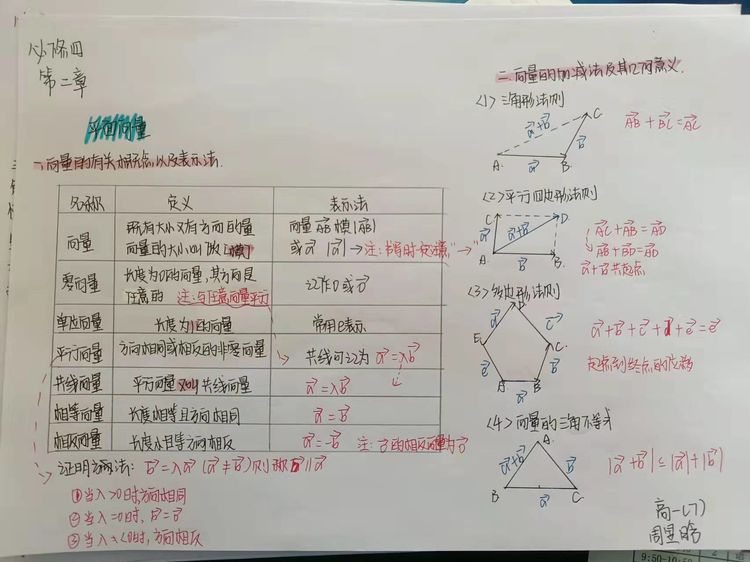 必修四
第二章
平面向量
一、向量的有关概念以及表示法.
名称 定义 表示法
向量 既有大小又有方向的量
向量的大小叫做【模】 向量AB 模|AB|
或a |a| → 注:书写时一定注意"→"
零向量 长度为0的向量,其方向是
任意的 注:与任意向量平行 记作0或0
单位向量 长度为1的向量 常用e表示
平行向量 方向相同或相反的非零向量 共线可记为 a=λb
共线向量 平行向量又叫共线向量 a=λb
相等向量 长度相等且方向相同 a=b
相反向量 长度相等方向相反 a=-b 注:0的相反向量为0
证明方法: b=λa (a≠b)则称b∥a
①当λ>0时,方向相同
②当λ=0时, b=0
③当λ<0时,方向相反
二.向量的加减法及其几何意义.
(1)三角形法则
A B C a b a+b
AB+BC=AC
(2)平行四边形法则
C D A B a b a+b
AC+AB=AD
AB+BD=AD
a+b共起点
(3)多边形法则
D E C A B a b c e
a+b+c+d+e=e
起点到终点的位移
(4)向量的三角不等式
A B C a+b b a
|a+b|≤|a|+|b|
高一(7)
9:50-10:50